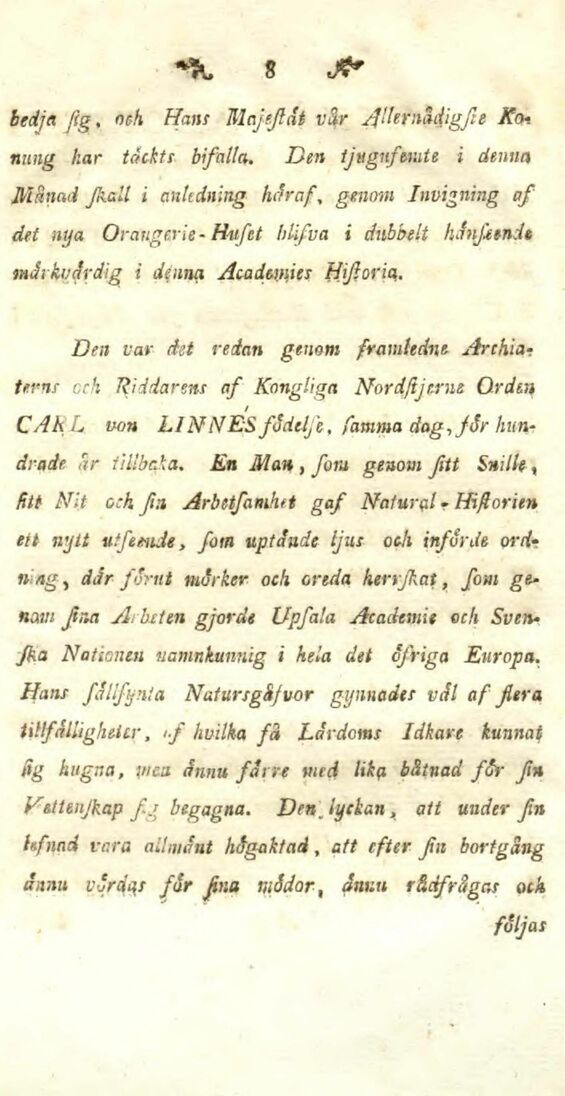 8
bedja ſig, och Hans Majeſtåt vår Allernådigſte Ko-
nung har tåckts bifalla. Den tjugufemte i denna
Månad ſkall i anledning håraf, genom Invigning af
det nya Orangerie-Huſet blifva i dubbelt hånſeende
mårkvårdig i denna Academies Hiſtoria.
Den var det redan genom framledne Archia-
terns och Riddarens af Kongliga Nordſtjerne Orden
CARL von LINNÉS födelſe, ſamma dag, för hun-
drade år tillbaka. En Man, ſom genom ſitt Snille,
ſitt Nit och ſin Arbetſamhet gaf Natural-Hiſtorien
ett nytt utſeende, ſom uptånde ljus och införde ord-
ning, dår förut mörker och oreda herrſkat, ſom ge-
nom ſina Arbeten gjorde Upſala Academie och Sven-
ſka Nationen namnkunnig i hela det öfriga Europa.
Hans ſållſynta Natursgåfvor gynnades vål af flera
tillfålligheter, af hvilka få Lårdoms Idkare kunnat
ſig hugna, men ånnu fårre med lika båtnad för ſin
Vettenſkap ſig begagna. Den lyckan, att under ſin
lefnad vara allmånt högaktad, att efter ſin bortgång
ånnu vördas för ſina mödor, ånnu rådfrågas och
följas